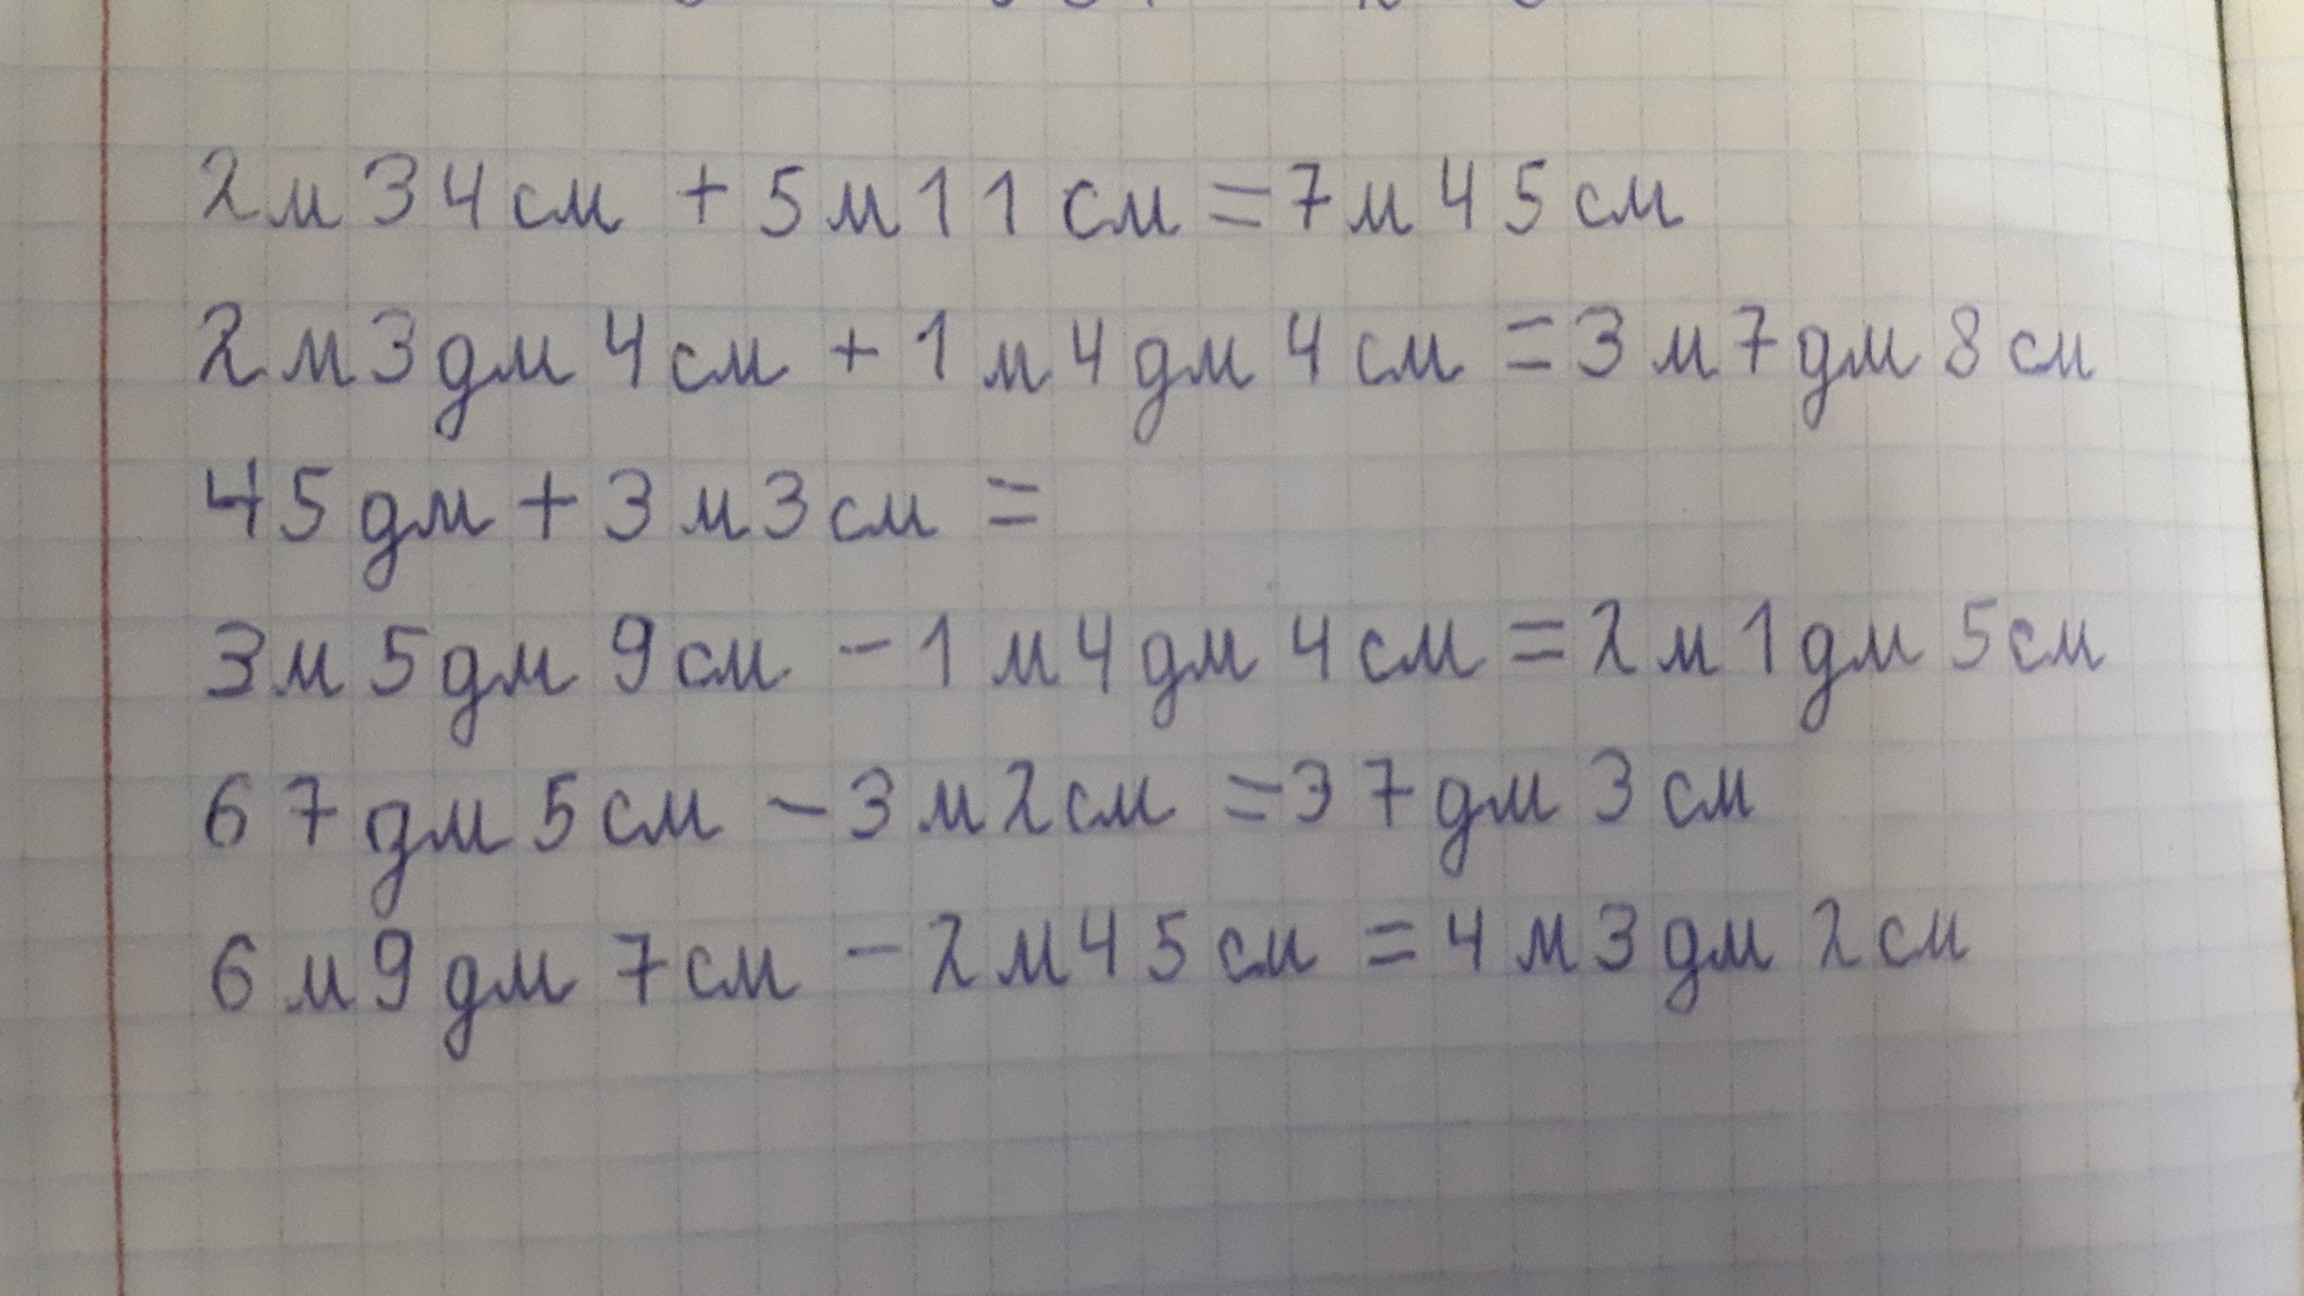 2м34см + 5м11см = 7м45см
2м3дм4см + 1м4дм4см = 3м7дм8см
45дм + 3м3см =
3м5дм9см - 1м4дм4см = 2м1дм5см
67дм5см - 3м2см = 37дм3см
6м9дм7см - 2м45см = 4м3дм2см